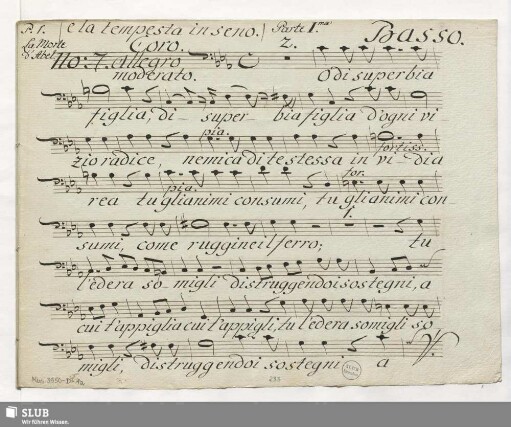 P. 1. e la tempesta in seno. Parte I.ma
La Morte Coro. 2. Basso.
d'Abel No: 7. Allegro
moderato. O di superbia
figlia, di - super - bia figlia d'ogni vi
pia. fortiss:
zio radice, nemica di te stessa in vi - dia
pia. for.
rea tu gli animi consumi, tu gli animi con-
sumi, come ruggine il ferro; tu
l'edera so migli distruggendo i sostegni, a
cui t'appiglia cui t'appigli, tu l'edera somigli so
migli, distruggendo i sostegni a
SLUB
Wir führen Wissen.